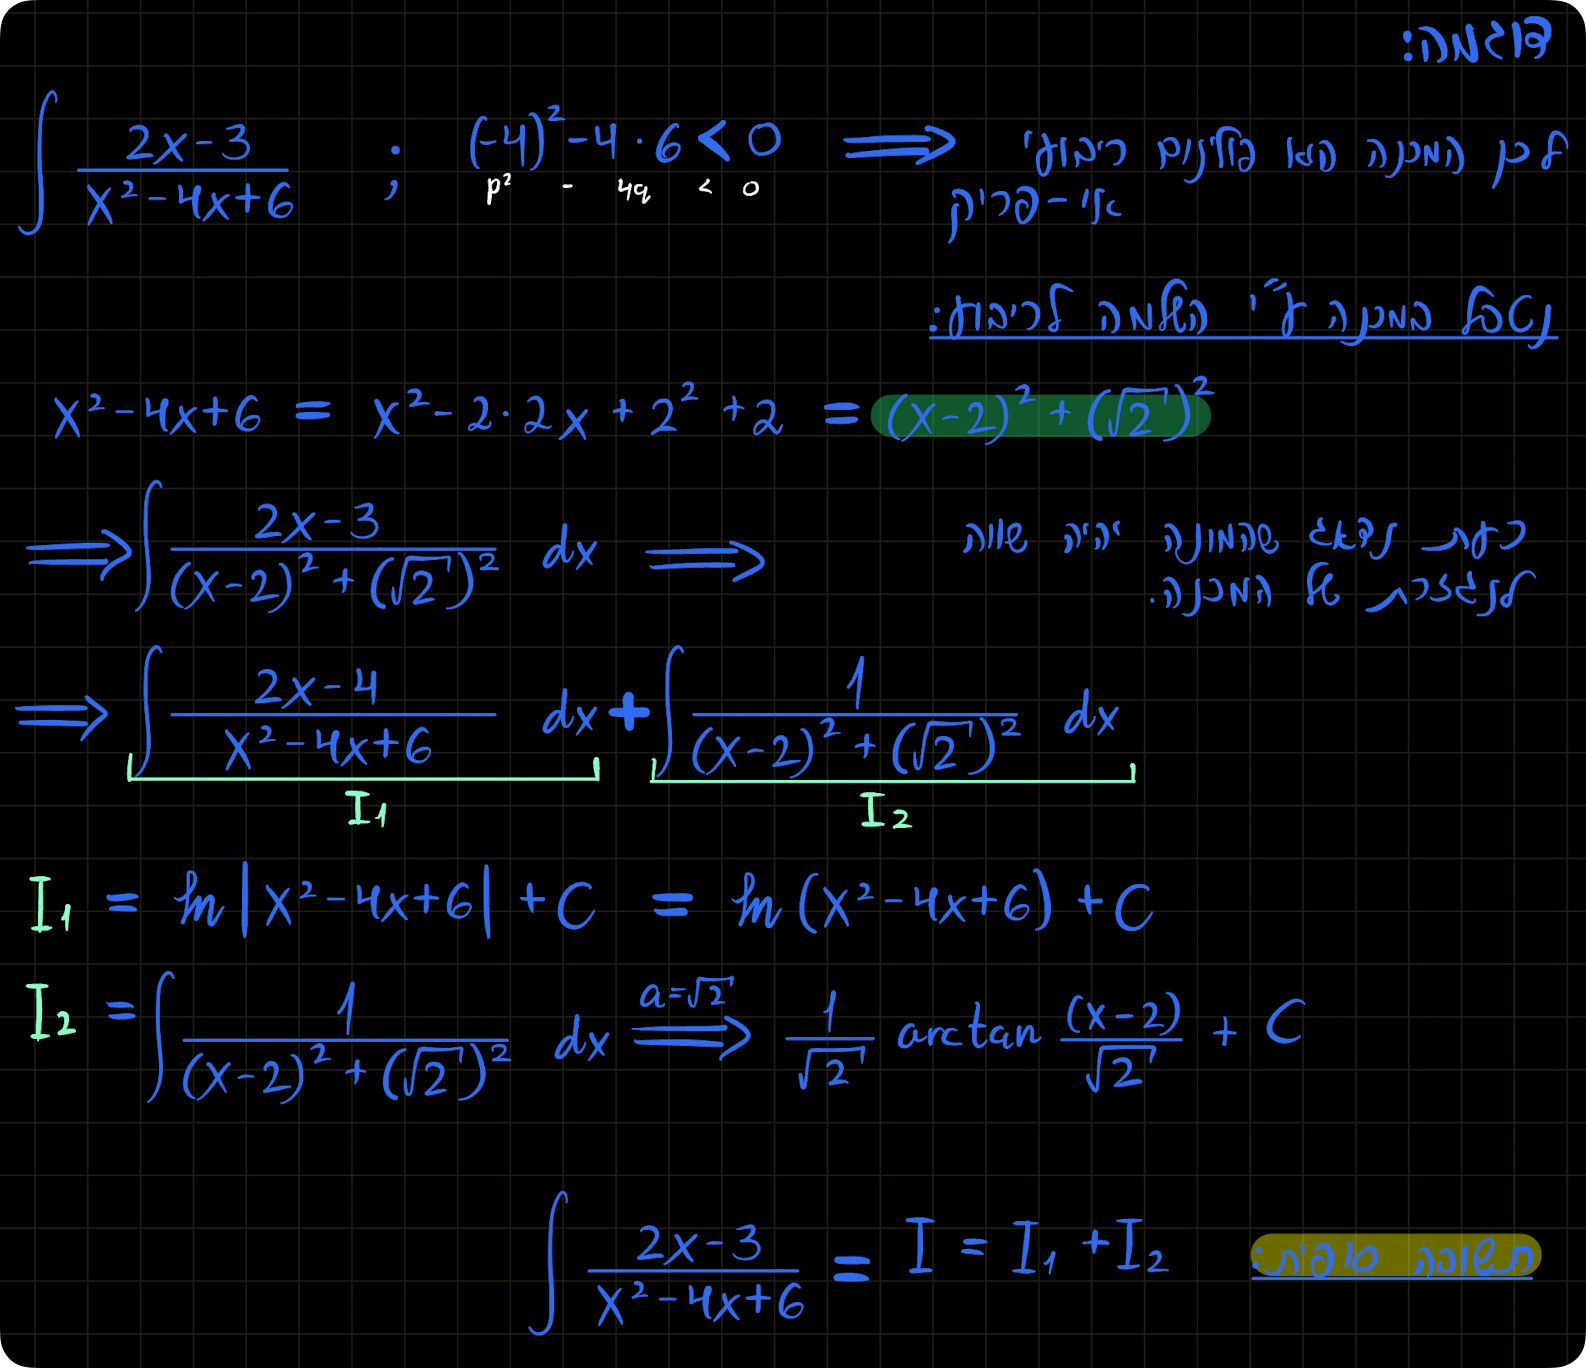 דוגמה:
∫ (2x-3)/(x²-4x+6) ; (-4)²-4·6<0 ⟹ לכן המכנה הוא פולינום ריבועי
p² - 4q < 0
אי-פריק
נטפל במכנה ע"י השלמה לריבוע:
x²-4x+6 = x²-2·2x+2²+2 = (x-2)²+(√2)²
⟹ ∫ (2x-3)/((x-2)²+(√2)²) dx ⟹ כעת נדאג שהמונה יהיה שווה
לנגזרת של המכנה.
⟹ ∫ (2x-4)/(x²-4x+6) dx + ∫ 1/((x-2)²+(√2)²) dx
I₁ I₂
I₁ = ln|x²-4x+6|+C = ln(x²-4x+6)+C
I₂ = ∫ 1/((x-2)²+(√2)²) dx a=√2 ⟹ 1/√2 arctan (x-2)/√2 + C
תשובה סופית: ∫ (2x-3)/(x²-4x+6) = I = I₁+I₂